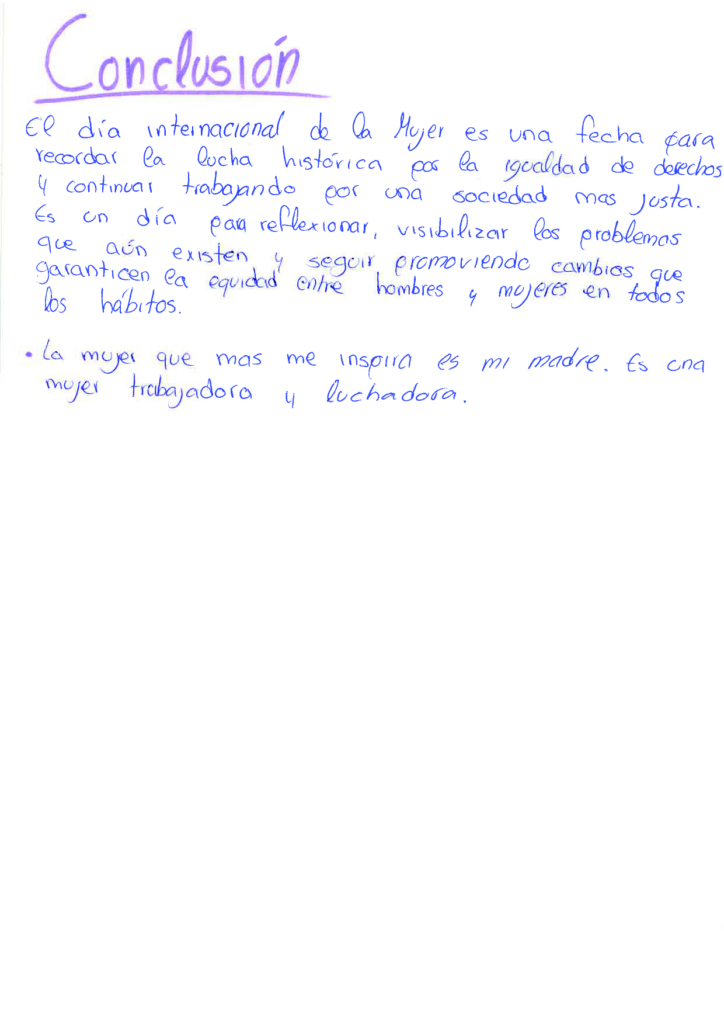 Conclusión
El día internacional de la Mujer es una fecha para
recordar la lucha histórica por la igualdad de derechos
y continuar trabajando por una sociedad mas justa.
Es un día para reflexionar, visibilizar los problemas
que aún existen y seguir promoviendo cambios que
garanticen la equidad entre hombres y mujeres en todos
los hábitos.
• La mujer que mas me inspira es mi madre. Es una
mujer trabajadora y luchadora.